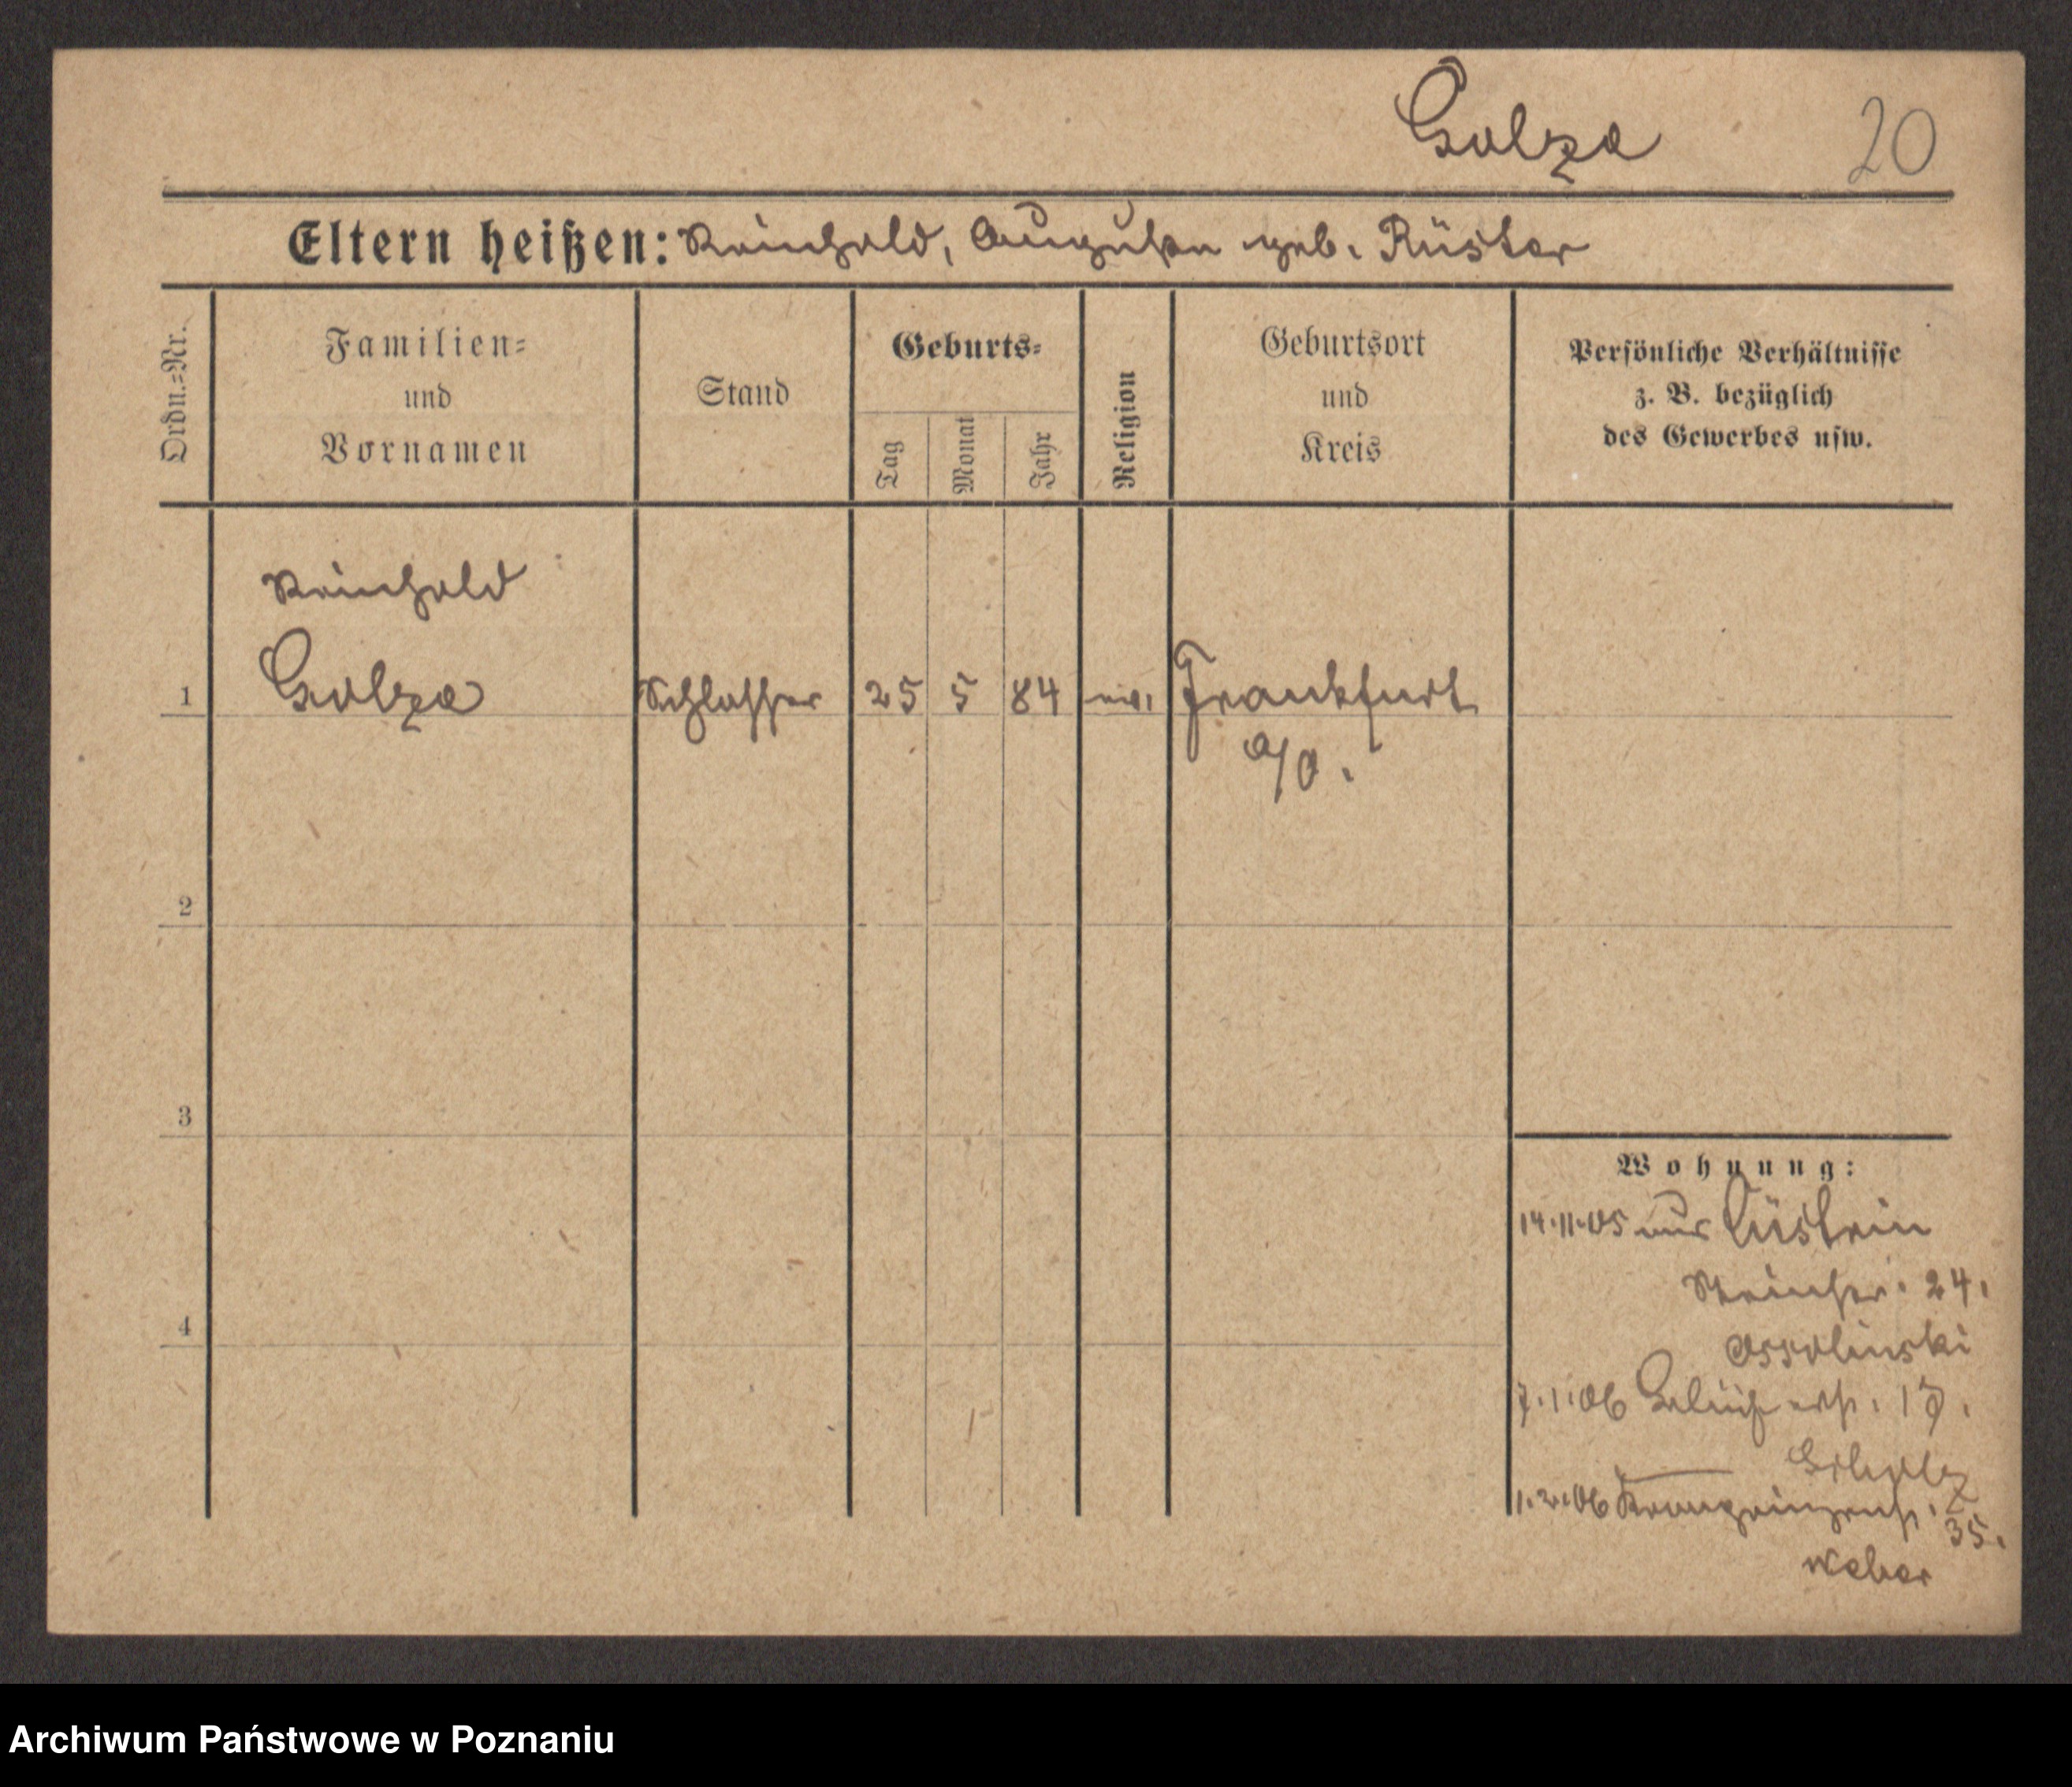 Golze 20
Eltern heißen: Reinhold, Auguste geb. Rüster
Ordn.=Nr.
Familien=
und
Vornamen
Stand
Geburts=
Tag
Monat
Jahr
Religion
Geburtsort
und
Kreis
Persönliche Verhältnisse
z. B. bezüglich
des Gewerbes usw.
Reinhold
1 Golze Schlosser 25 5 84 ev. Frankfurt
a/O.
2
3
4
Wohnung:
14.11.05 aus Cüstrin
24.
Ossolinski
7.1.06
Scholz
1.2.06 Kronprinzenst. 35.
Weber
Archiwum Państwowe w Poznaniu